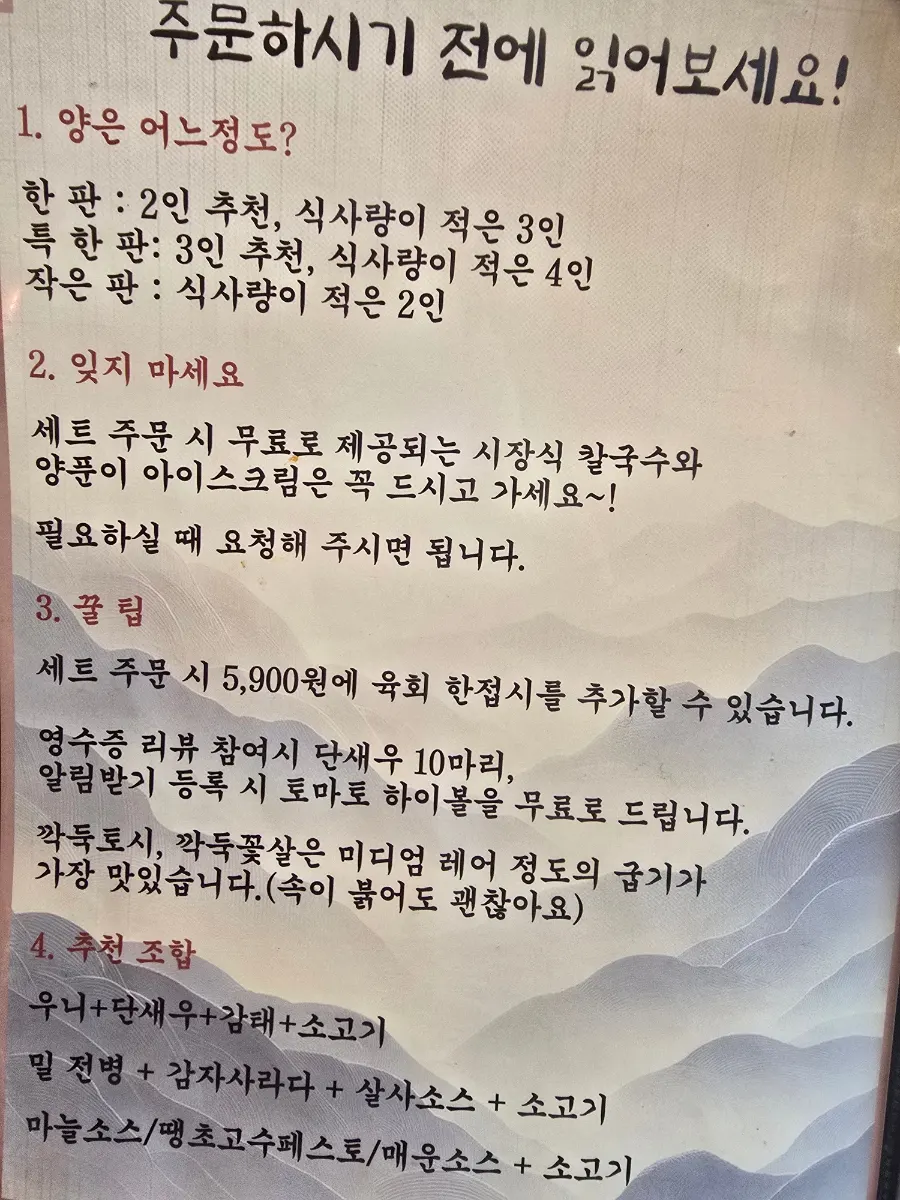 주문하시기 전에 읽어보세요!
1. 양은 어느정도?
한 판 : 2인 추천, 식사량이 적은 3인
특 한 판: 3인 추천, 식사량이 적은 4인
작은 판 : 식사량이 적은 2인
2. 잊지 마세요
세트 주문 시 무료로 제공되는 시장식 칼국수와
양푼이 아이스크림은 꼭 드시고 가세요~!
필요하실 때 요청해 주시면 됩니다.
3. 꿀 팁
세트 주문 시 5,900원에 육회 한접시를 추가할 수 있습니다.
영수증 리뷰 참여시 단새우 10마리,
알림받기 등록 시 토마토 하이볼을 무료로 드립니다.
깍둑토시, 깍둑꽃살은 미디엄 레어 정도의 굽기가
가장 맛있습니다.(속이 붉어도 괜찮아요)
4. 추천 조합
우니+단새우+감태+소고기
밀 전병 + 감자사라다 + 살사소스 + 소고기
마늘소스/땡초고수페스토/매운소스 + 소고기